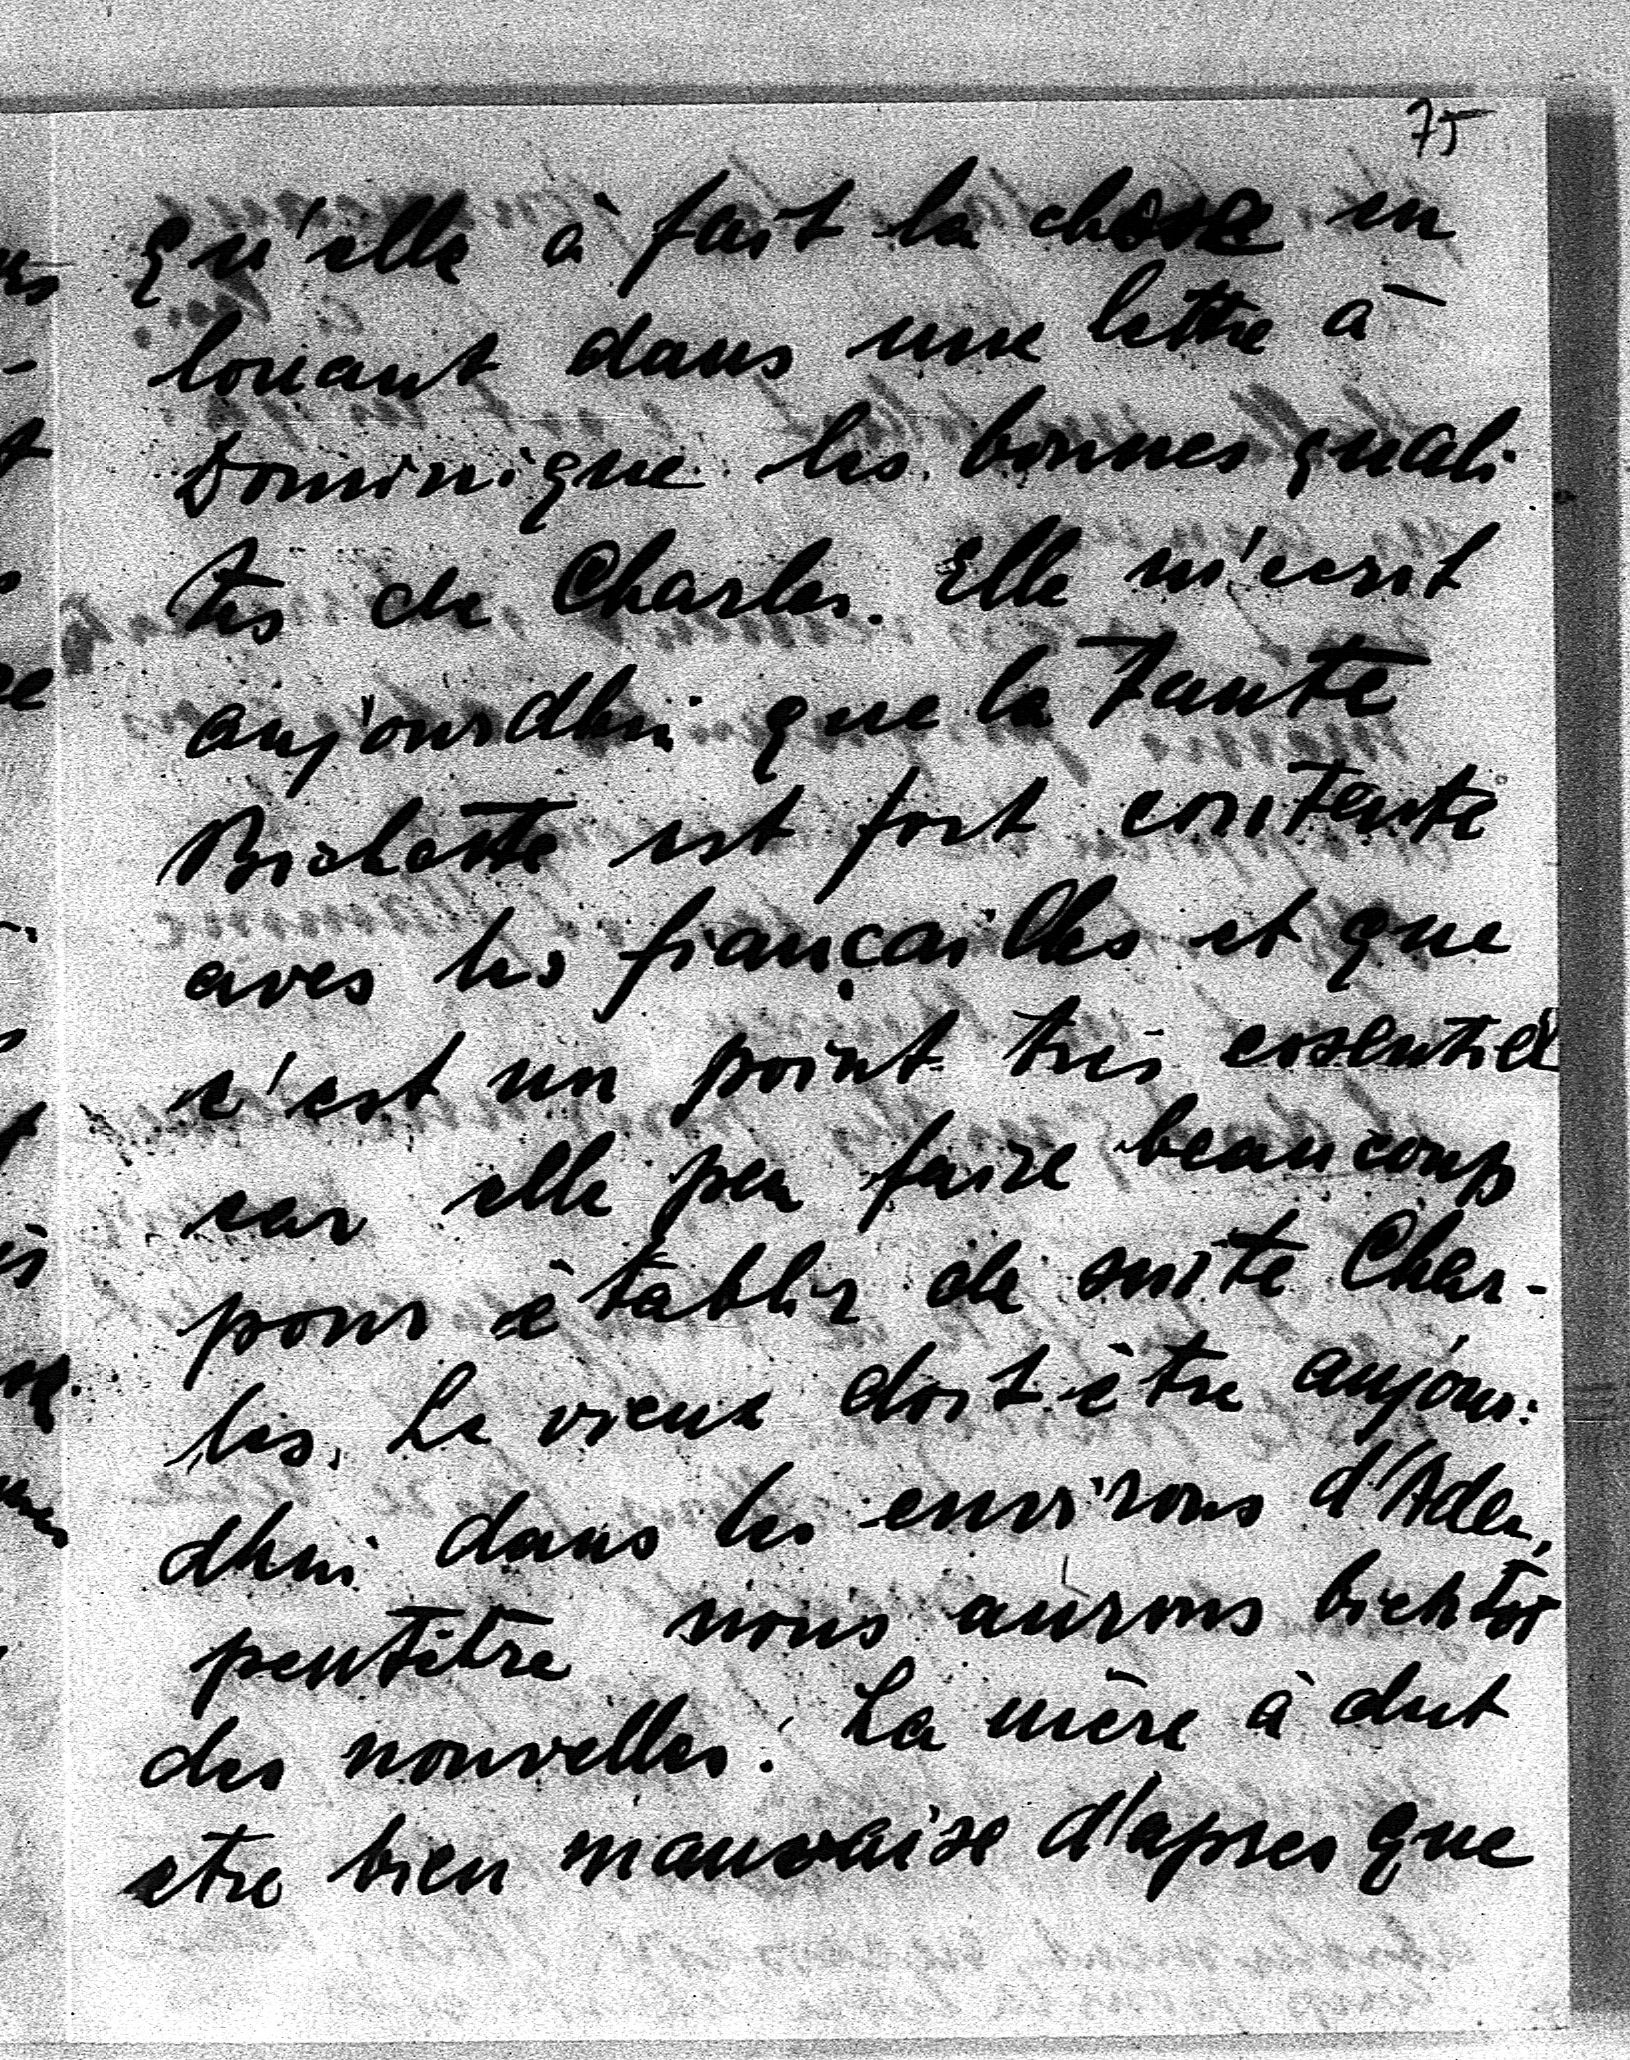 75
qu'elle à fait la chose en
louant dans une lettre à
Dominique les bonnes quali
tés de Charles. Elle m'ecrit
aujourdhui que la Tante
Bichette est fort contente
aves les fiançailles et que
c'est un point très essentiel
car elle peu faire beaucoup
pour ètablir de suite Char-
les. Le vieux doit être aujour:
dhui dans les environs d'Aden,
peutêtre nous aurons bientôt
des nouvelles. La mère à dut
etre bien mauvaise d'apres que